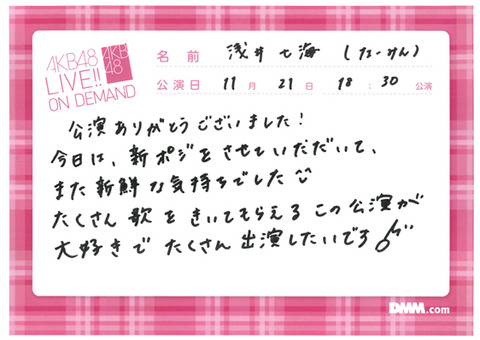 AKB48
LIVE!!
ON DEMAND
AKB
48
名前 浅井七海 (なーみん)
公演日 11月21日 18:30公演
公演ありがとうございました!
今日は、新ポジをさせていただいて、
また新鮮な気持ちでした
たくさん歌をきいてもらえるこの公演が
大好きでたくさん出演したいです
DMM.com